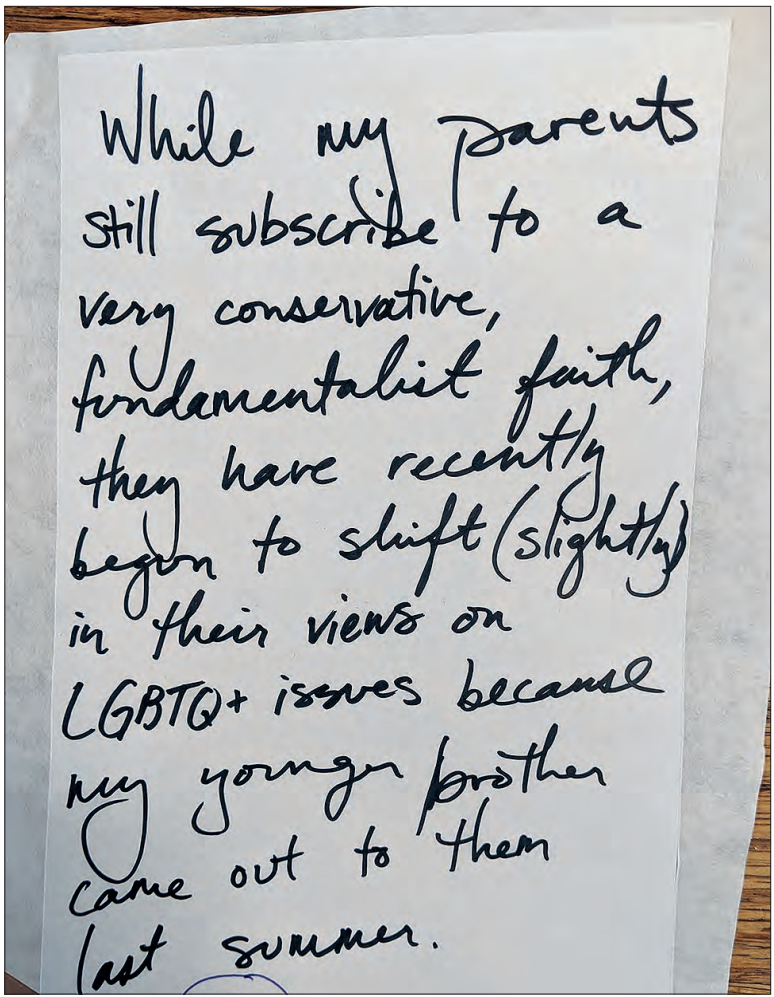 While my parents
still subscribe to a
very conservative,
fundamentalist faith,
they have recently
begun to shift (slightly)
in their views on
LGBTQ+ issues because
my younger brother
came out to them
last summer.